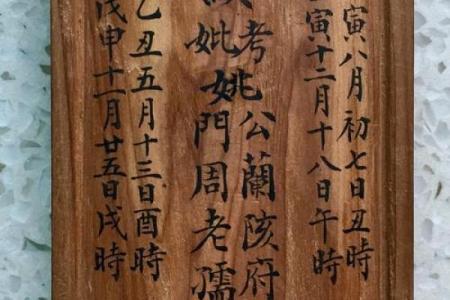 寅八月初七日丑時
寅十二月十八日午時
考姚公蘭陔府
妣門周老孺
乙丑五月十三日酉時
戊申十一月廿五日戌時